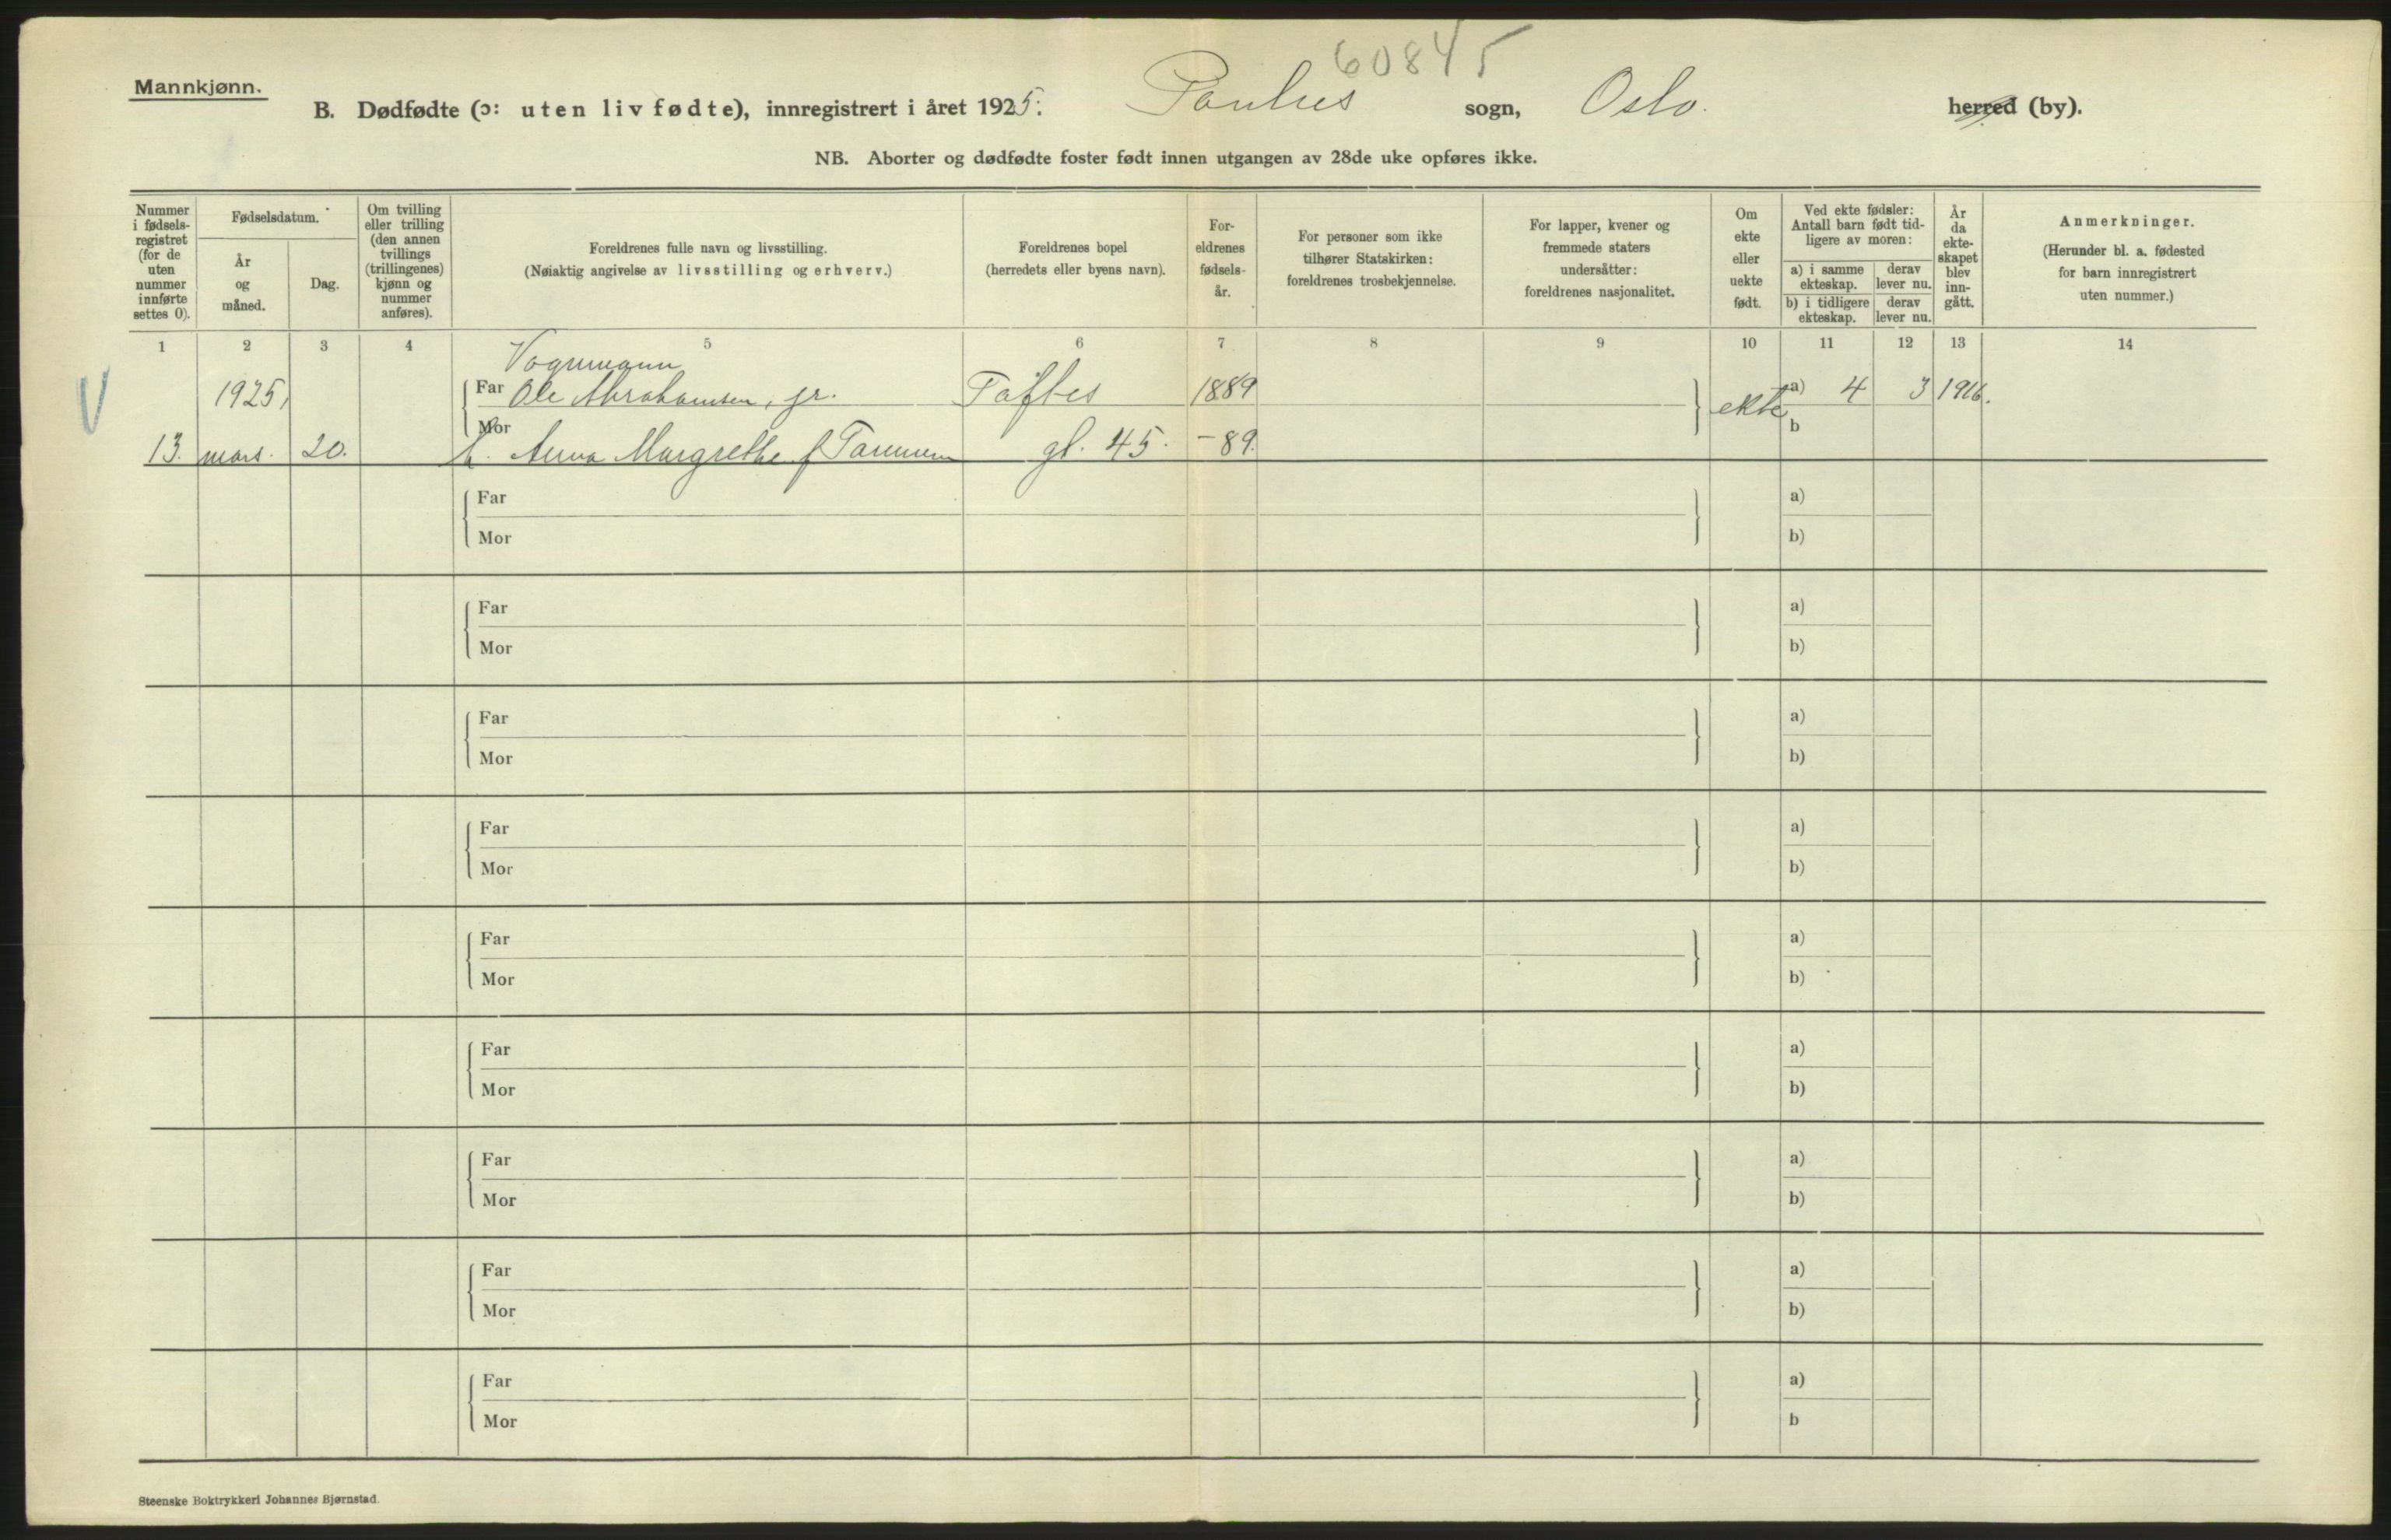 60845
Mannkjønn.
B. Dødfødte (ɔ: uten liv fødte), innregistrert i året 1925: Paulus sogn, Oslo. herred (by).
NB. Aborter og dødfødte foster født innen utgangen av 28de uke opføres ikke.
Nummer i fødsels-registret (for de uten nummer innførte settes 0).
Fødselsdatum.
År og måned.
Dag.
Om tvilling eller trilling (den annen tvillings (trillingenes) kjønn og nummer anføres).
Foreldrenes fulle navn og livsstilling.
(Nøiaktig angivelse av livsstilling og erhverv.)
Foreldrenes bopel
(herredets eller byens navn).
For-eldrenes fødsels-år.
For personer som ikke tilhører Statskirken: foreldrenes trosbekjennelse.
For lapper, kvener og fremmede staters undersåtter: foreldrenes nasjonalitet.
Om ekte eller uekte født.
Ved ekte fødsler: Antall barn født tid-ligere av moren:
a) i samme ekteskap.
derav lever nu.
b) i tidligere ekteskap.
derav lever nu.
År da ekte-skapet blev inn-gått.
Anmerkninger.
(Herunder bl. a. fødested for barn innregistrert uten nummer.)
1 2 3 4 5 6 7 8 9 10 11 12 13 14
Vognmann
1925, Far Ole Abrahamsen, jr. Toftes 1889 ekte a) 4 3 1916.
V
Mor b
13. mars. 20. h. Anna Margrethe f gt. 45. -89.
Far a)
Mor b)
Far a)
Mor b)
Far a)
Mor b)
Far a)
Mor b)
Far a)
Mor b)
Far a)
Mor b)
Far a)
Mor b)
Far a)
Mor b)
Far a)
Mor b
Steenske Boktrykkeri Johannes Bjørnstad.